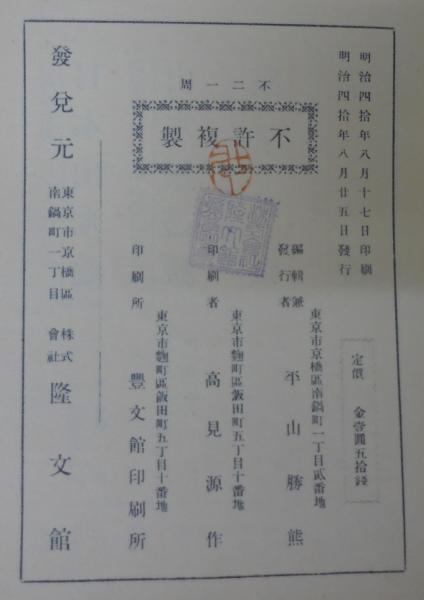 明治四拾年八月十七日印刷
明治四拾年八月廿五日發行
定價　金壹圓五拾錢
不二一周
不許複製
編輯兼發行者
東京市京橋區南鍋町一丁目貳番地
平山勝熊
印刷者
東京市麴町區飯田町五丁目十番地
高見源作
印刷所
東京市麴町區飯田町五丁目十番地
豐文館印刷所
發兌元
東京市京橋區南鍋町一丁目
株式會社
隆文館